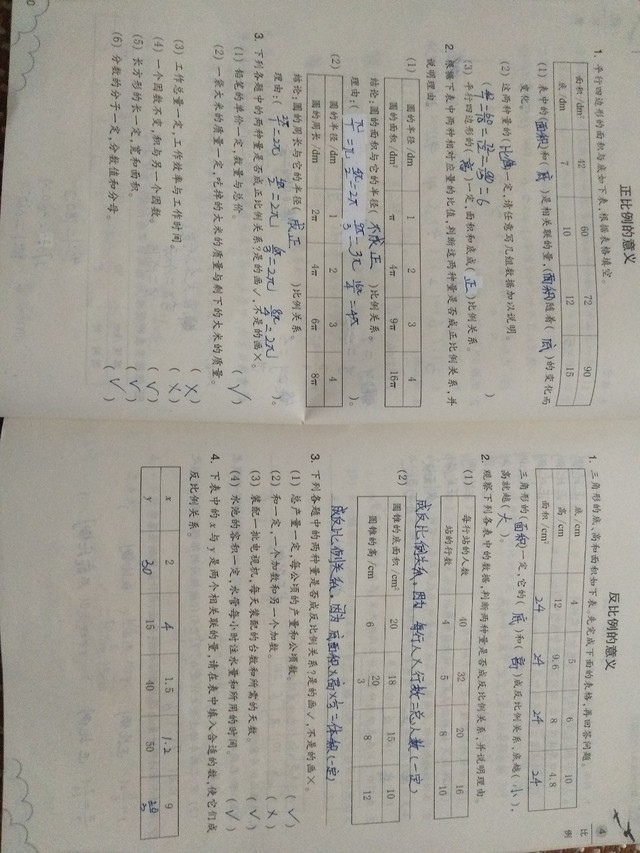 正比例的意义
1. 平行四边形的面积与底如下表,根据表格填空。
面积/dm² 42 60 72 90
底/dm 7 10 12 15
(1) 表中的(面积)和(底)是相关联的量,(面积)随着(底)的变化而
变化。
(2) 这两种量的(比值)一定,请任意写几组数据加以说明。
(3) 平行四边形的(高)一定,面积和底成(正)比例关系。
2. 根据下表中两种相对应量的比值,判断这两种量是否成正比例关系,并
说明理由。
(1)
圆的半径/dm 1 2 3 4
圆的面积/dm² π 4π 9π 16π
结论:圆的面积与它的半径(不成正)比例关系。
(2)
圆的半径/dm 1 2 3 4
圆的周长/dm 2π 4π 6π 8π
结论:圆的周长与它的半径(成正)比例关系。
3. 下列各题中的两种量是否成正比例关系?是的画√,不是的画×。
(1) 铅笔的单价一定,数量与总价。 (√)
(2) 一袋大米的质量一定,吃掉的大米的质量与剩下的大米的质量。
(×)
(3) 工作总量一定,工作效率与工作时间。 (×)
(4) 一个因数不变,积与另一个因数。 (√)
(5) 长方形的长一定,宽和面积。 (√)
(6) 分数的分子一定,分数值和分母。 (√)
4 比例
反比例的意义
1. 三角形的底、高和面积如下表,先完成下面的表格,再回答问题。
底/cm 4 5 6 10
高/cm 12 9.6 8 4.8
面积/cm² 24 24 24 24
三角形的(面积)一定,它的(底)和(高)成反比例关系,底越(小),
高就越(大)。
2. 观察下列各表中的数据,判断两种量是否成反比例关系,并说明理由
(1)
每行站的人数 40 32 20 16
站的行数 4 5 8 10
成反比例关系,因为 每行人×行数=总人数(一定)
(2)
圆锥的底面积/cm² 20 18 15 10
圆锥的高/cm 6 20/3 8 12
成反比例关系。因为 底面积×高×⅓=体积(一定)
3. 下列各题中的两种量是否成反比例关系?是的画√,不是的画×。
(1) 总产量一定,每公顷的产量和公顷数。 (√)
(2) 和一定,一个加数和另一个加数。 (×)
(3) 装配一批电视机,每天装配的台数和所需的天数 (√)
(4) 水池的容积一定,水管每小时注水量和所用的时间。 (√)
4. 下表中的x与y是两个相关联的量,请在表中填入合适的数,使它们成
反比例关系。
x 2 4 1.5 1.2 9
y 30 15 40 50 20/3